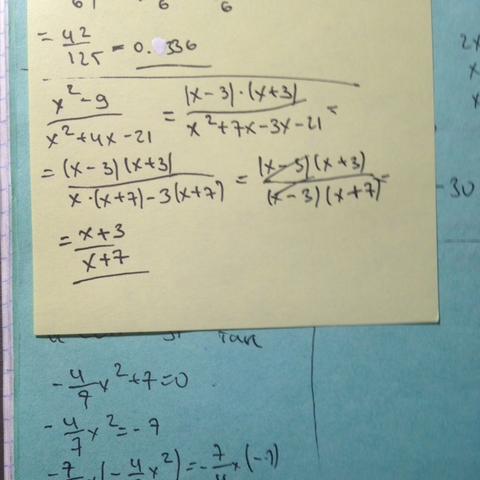 6 6
= 42/125 = 0.336
(x² - 9)/(x² + 4x - 21) = ((x - 3) · (x + 3))/(x² + 7x - 3x - 21) =
= ((x - 3)(x + 3))/(x · (x + 7) - 3(x + 7)) = ((x - 3)(x + 3))/((x - 3)(x + 7)) =
= (x + 3)/(x + 7)
2x
x
x
-30
-4/7x² + 7 = 0
-4/7x² = -7
-7/4x(-4/7x²) = -7/4x(-7)